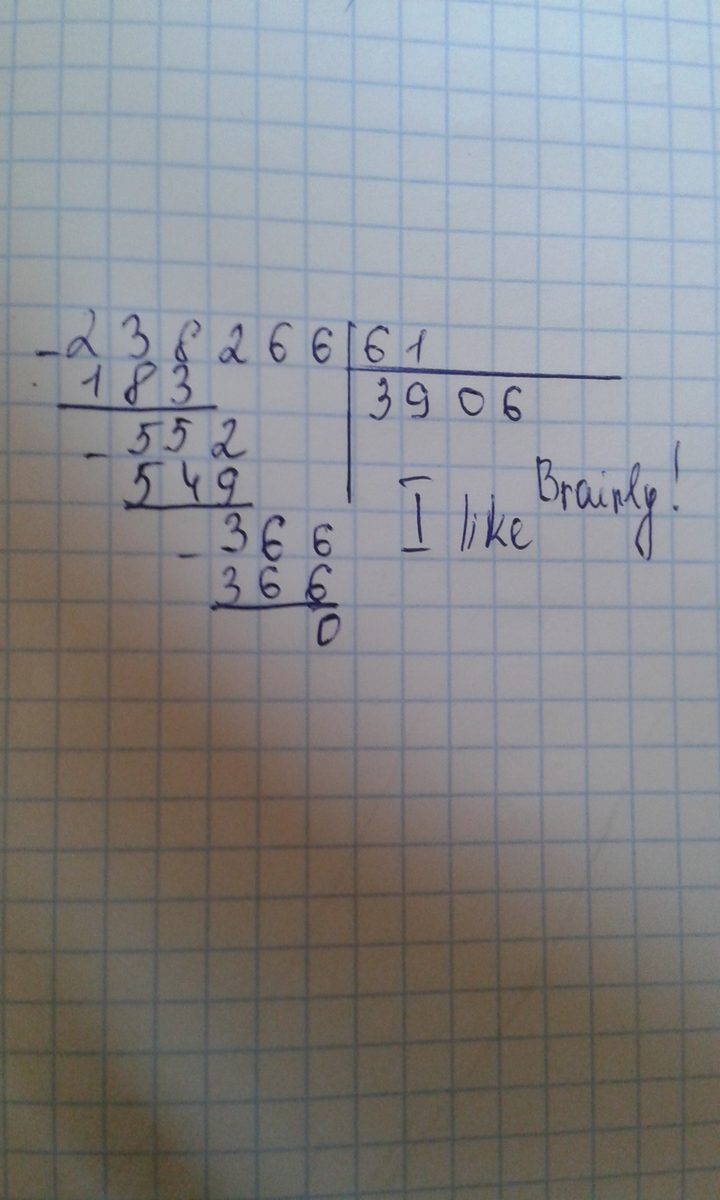 -238266 | 61
183 3906
-552
549
-366
366
0
I like Brainly!